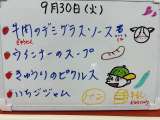 9月30日(火)
牛肉のデミグラスソース煮
ウインナーのスープ
きゅうりのピクルス
いちごジャム
パン